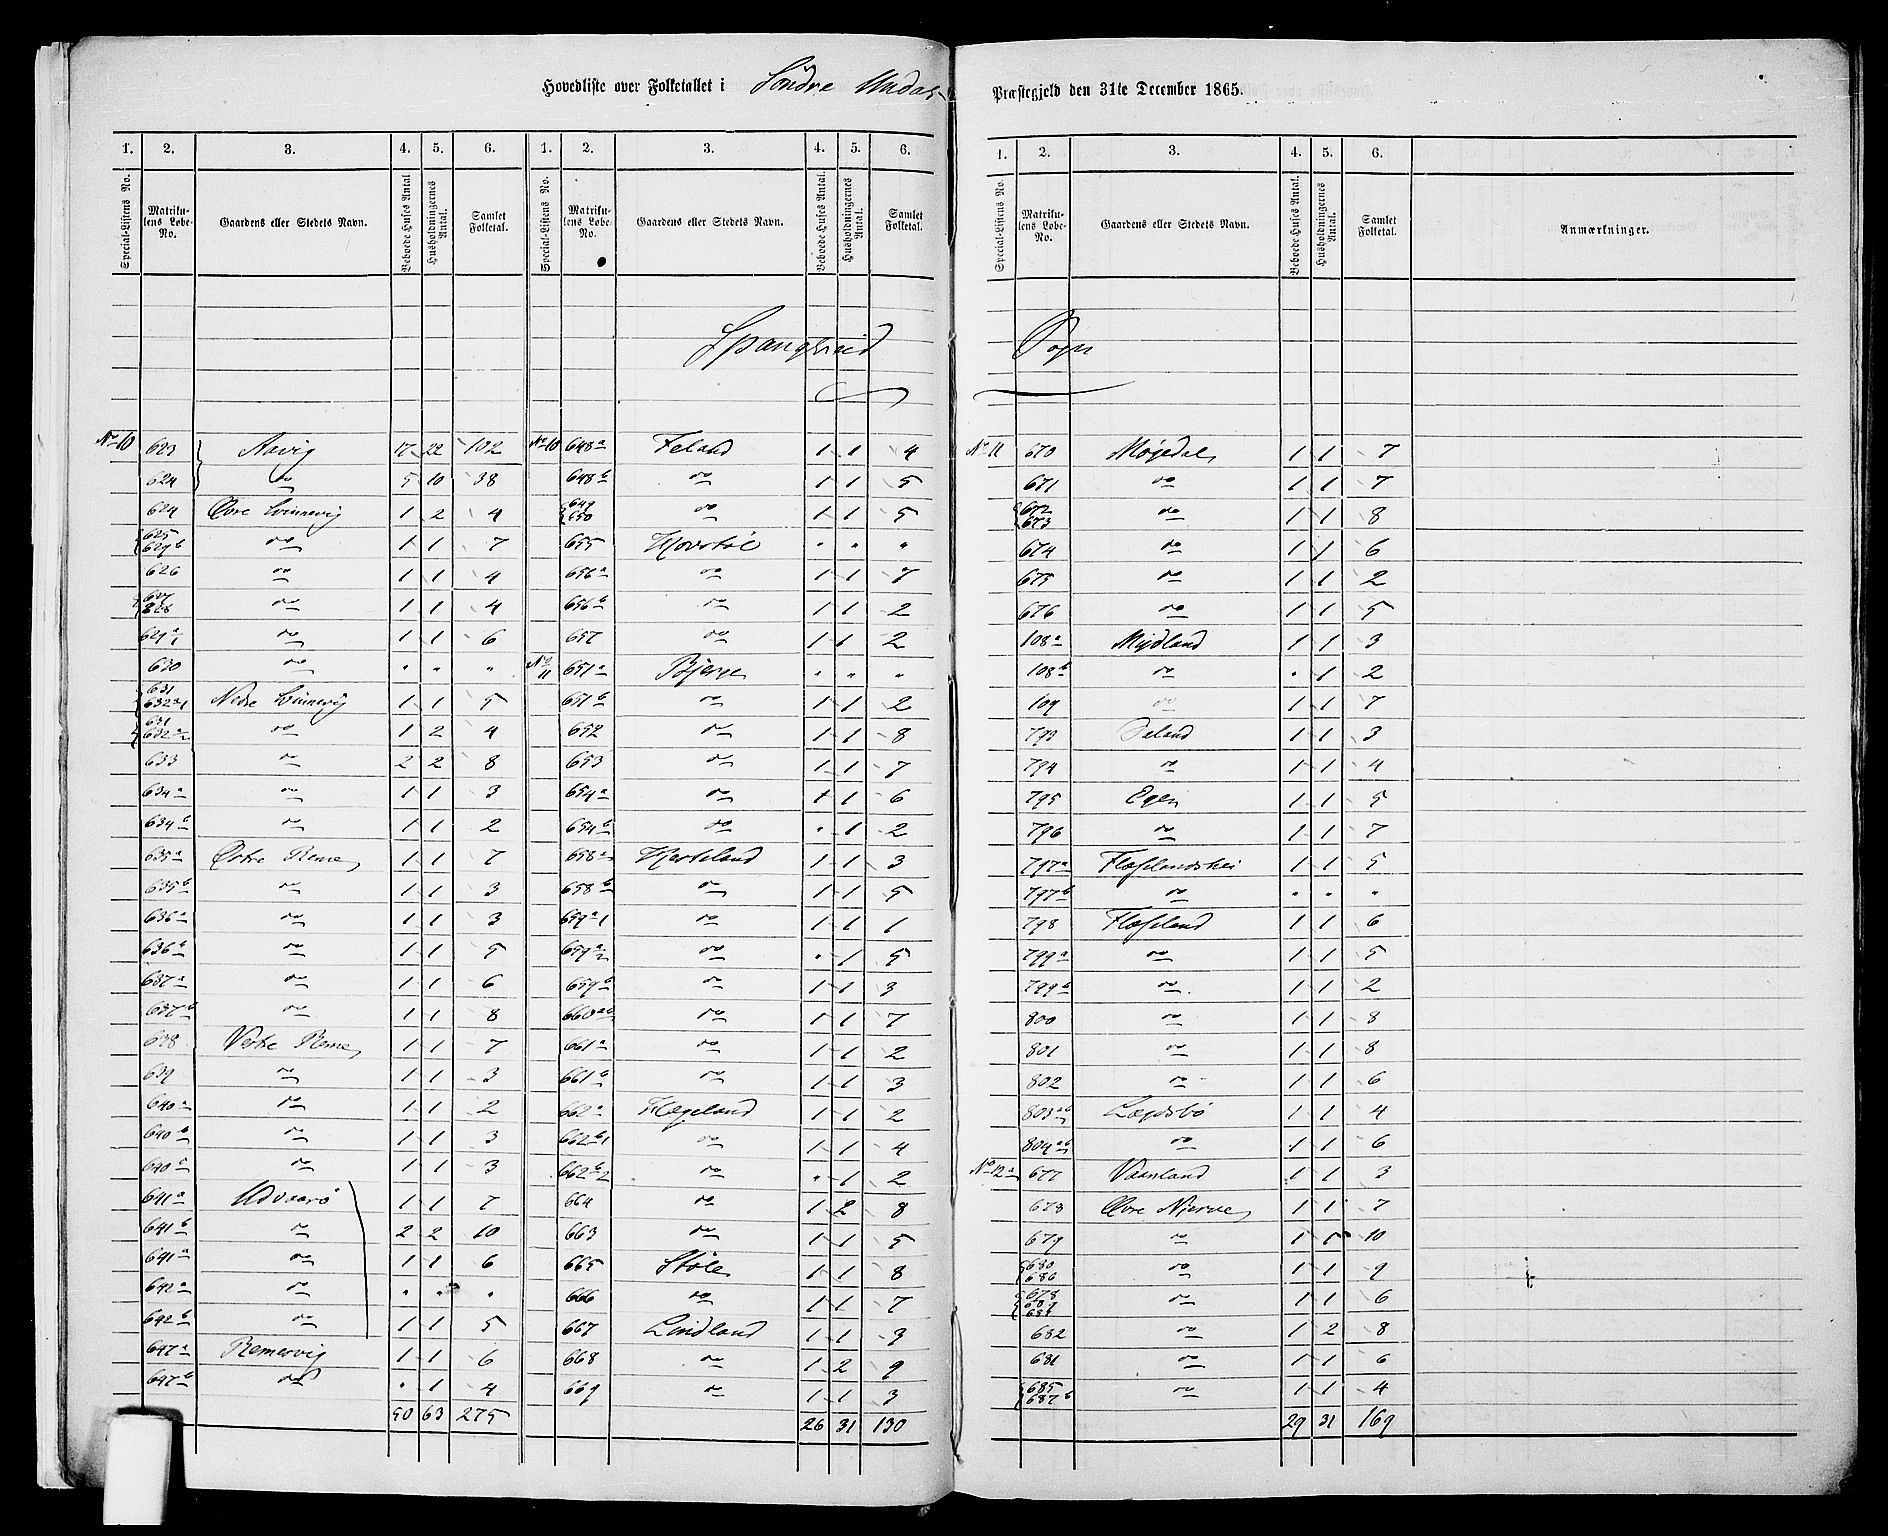 Hovedliste over Folketallet i Söndre Undals Præstegjeld den 31te December 1865.
1. 2. 3. 4. 5. 6. 1. 2. 3. 4. 5. 6. 1. 2. 3. 4. 5. 6.
Special-Listens No. Matrikulens Løbe-No. Gaardens eller Stedets Navn. Beboede Huses Antal. Husholdningernes Antal. Samlet Folketal. Special-Listens No. Matrikulens Løbe-No. Gaardens eller Stedets Navn. Beboede Huses Antal. Husholdningernes Antal. Samlet Folketal. Special-Listens No. Matrikulens Løbe-No. Gaardens eller Stedets Navn. Beboede Huses Antal. Husholdningernes Antal. Samlet Folketal. Anmærkninger.
Spangereid Sogn
No 10 623 Aavig 17 22 102 No 10 648a Feland 1 1 4 No 11 670 Møjedal 1 1 7
624 do 5 10 38 648b do 1 1 5 671 do 1 1 7
624 Øvre Svinnevig 1 2 4 649 650 do 1 1 5 672 673 do 1 1 8
625 629b do 1 1 7 655 Hovstøl " " " 674 do 1 1 6
626 do 1 1 4 656a do 1 1 7 675 do 1 1 2
627 628 do 1 1 4 656b do 1 1 2 676 do 1 1 5
629a1 do 1 1 6 657 do 1 1 2 108a Midland 1 1 3
630 do " " " No 11 651a Bjerge " " " 108b do " 1 2
631 632a1 Nedre Svinnevig 1 1 5 651b do 1 1 2 109 do 1 1 7
631 632a2 do 1 2 4 652 do 1 1 8 793 Jaland 1 1 3
633 do 2 2 8 653 do 1 1 7 794 do 1 1 4
634a do 1 1 3 654a do 1 1 6 795 Egen 1 1 5
634b do 1 1 2 654b do " 1 2 796 do 1 1 7
635a Østre Reme 1 1 7 658a Hesteland 1 1 3 797a Flaselandshei 1 1 5
635b do 1 1 3 658b do 1 1 5 797b do " " "
636a do 1 1 3 659a1 do 1 1 1 798 Flaseland 1 1 6
636b do 1 1 5 659a2 do " 1 5 799a do 1 1 5
637a do 1 1 6 659b do 1 1 3 799b do 1 1 2
637b do 1 1 8 660ab do 1 1 7 800 do 1 1 8
638 Vestre Reme 1 1 7 661a do 1 1 2 801 do 1 1 8
639 do 1 1 3 661b do 1 1 3 802 do 1 1 6
640a do 1 1 2 662a Hægeland 1 1 2 803ab Lægdsbø 1 1 4
640b do 1 1 3 662b1 do 1 1 4 804ab do 1 1 6
640c do 1 1 3 662b2 do " 1 2 No 12a 677 Vaanland 1 1 3
641a Udvaarø 1 1 7 664 do 1 2 8 678 Øvre Njerve 1 1 7
641b do 2 2 10 663 do 1 1 5 679 do 1 1 10
641a do 1 1 6 665 Støle 1 1 8 680 686 do 1 1 9
642a do " " " 666 do 1 1 7 678 684 do 1 1 6
642b do 1 1 5 667 Lindland 1 1 3 682 do 1 2 8
647a Remesvig 1 1 6 668 do 1 2 9 681 do 1 1 6
647b do " 1 4 669 do 1 1 3 685 687b do 1 1 4
50 63 275 26 31 130 29 31 169